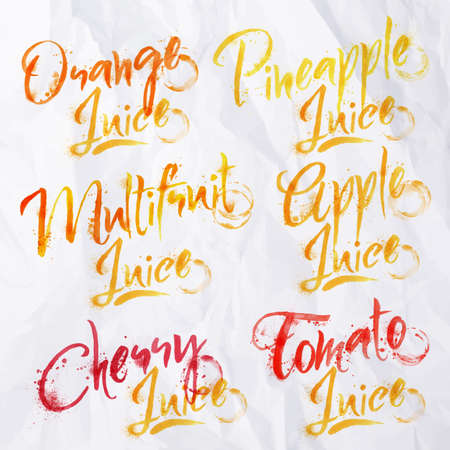 Orange
Juice
Pineapple
Juice
Multifruit
Juice
Apple
Juice
Cherry
Juice
Tomato
Juice